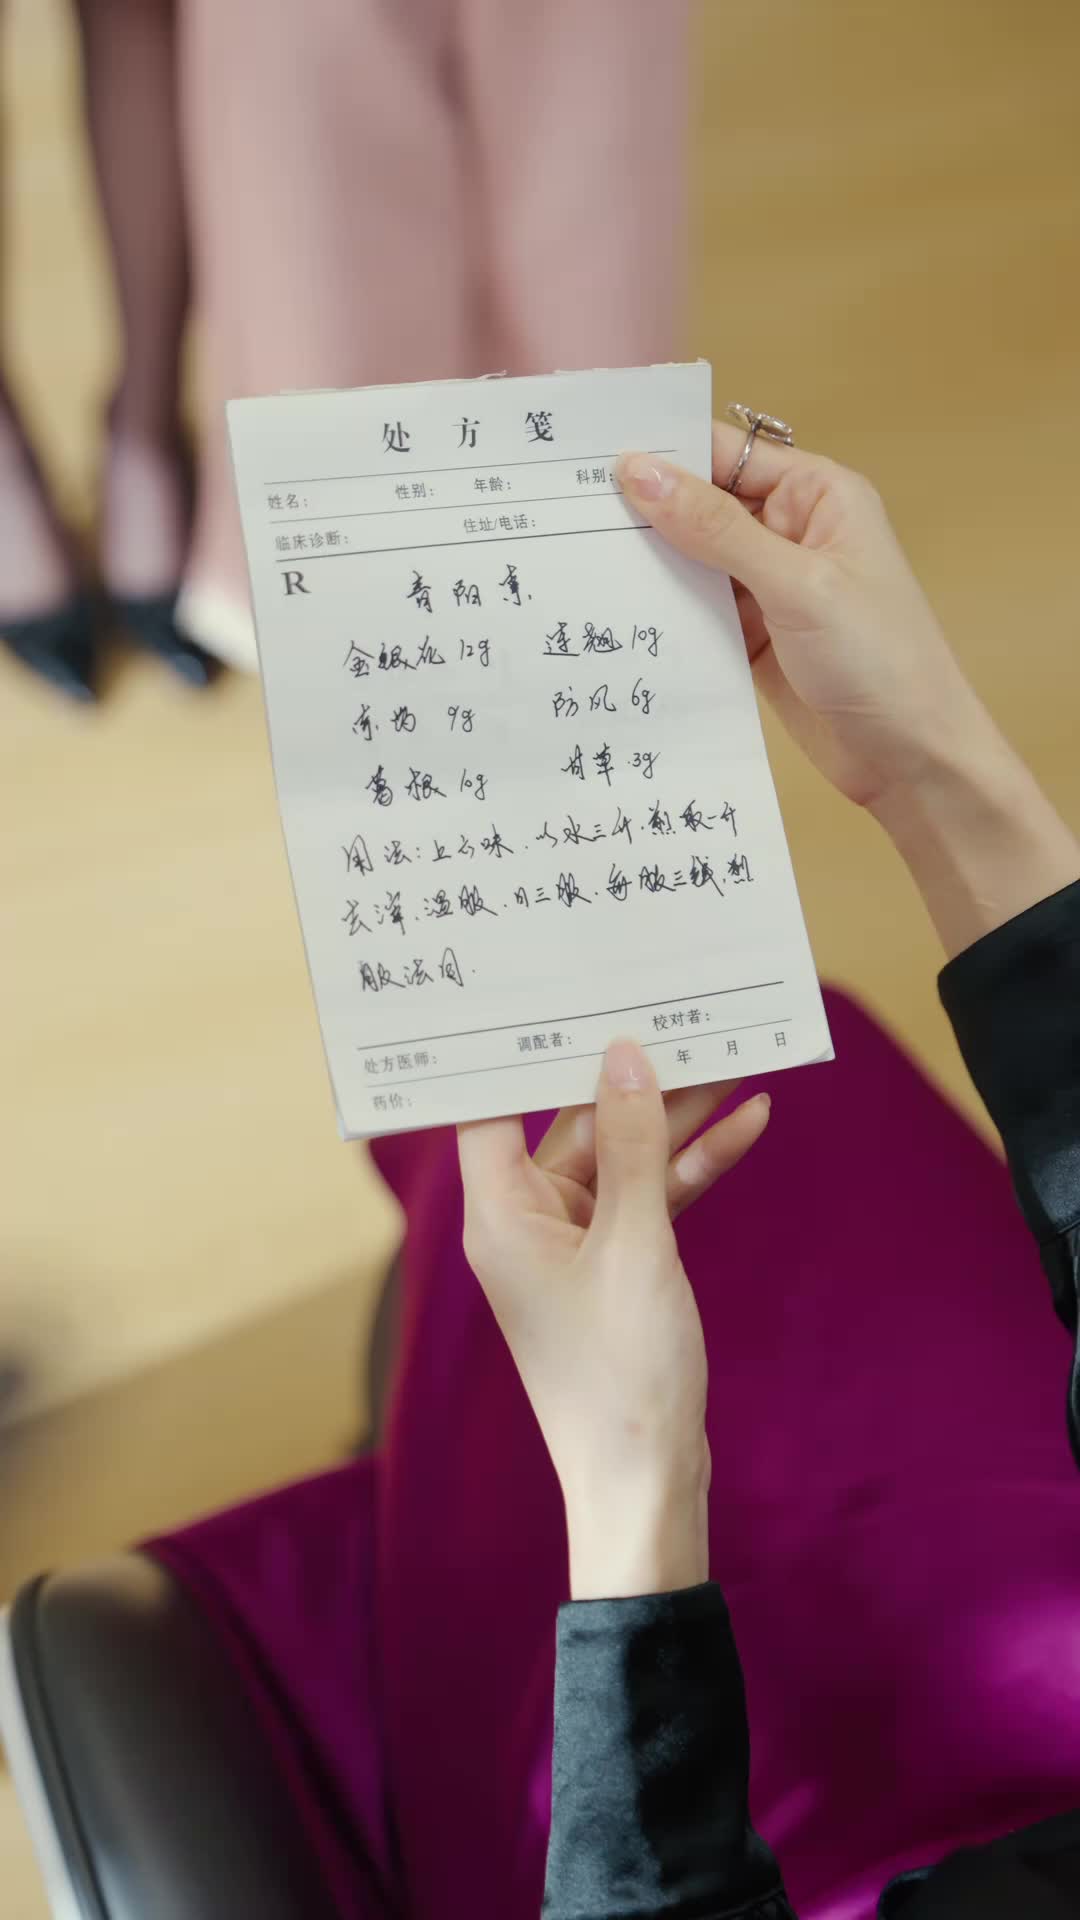 处方笺
姓名： 性别： 年龄： 科别：
临床诊断： 住址/电话：
R
青阳素
金银花 12g 连翘 10g
9g 防风 6g
葛根 10g 甘草 3g
用法：上六味，以水三升，煎取一升
去滓，温服，日三服，每服三钱，煎
服法同
处方医师： 调配者： 校对者：
药价： 年 月 日